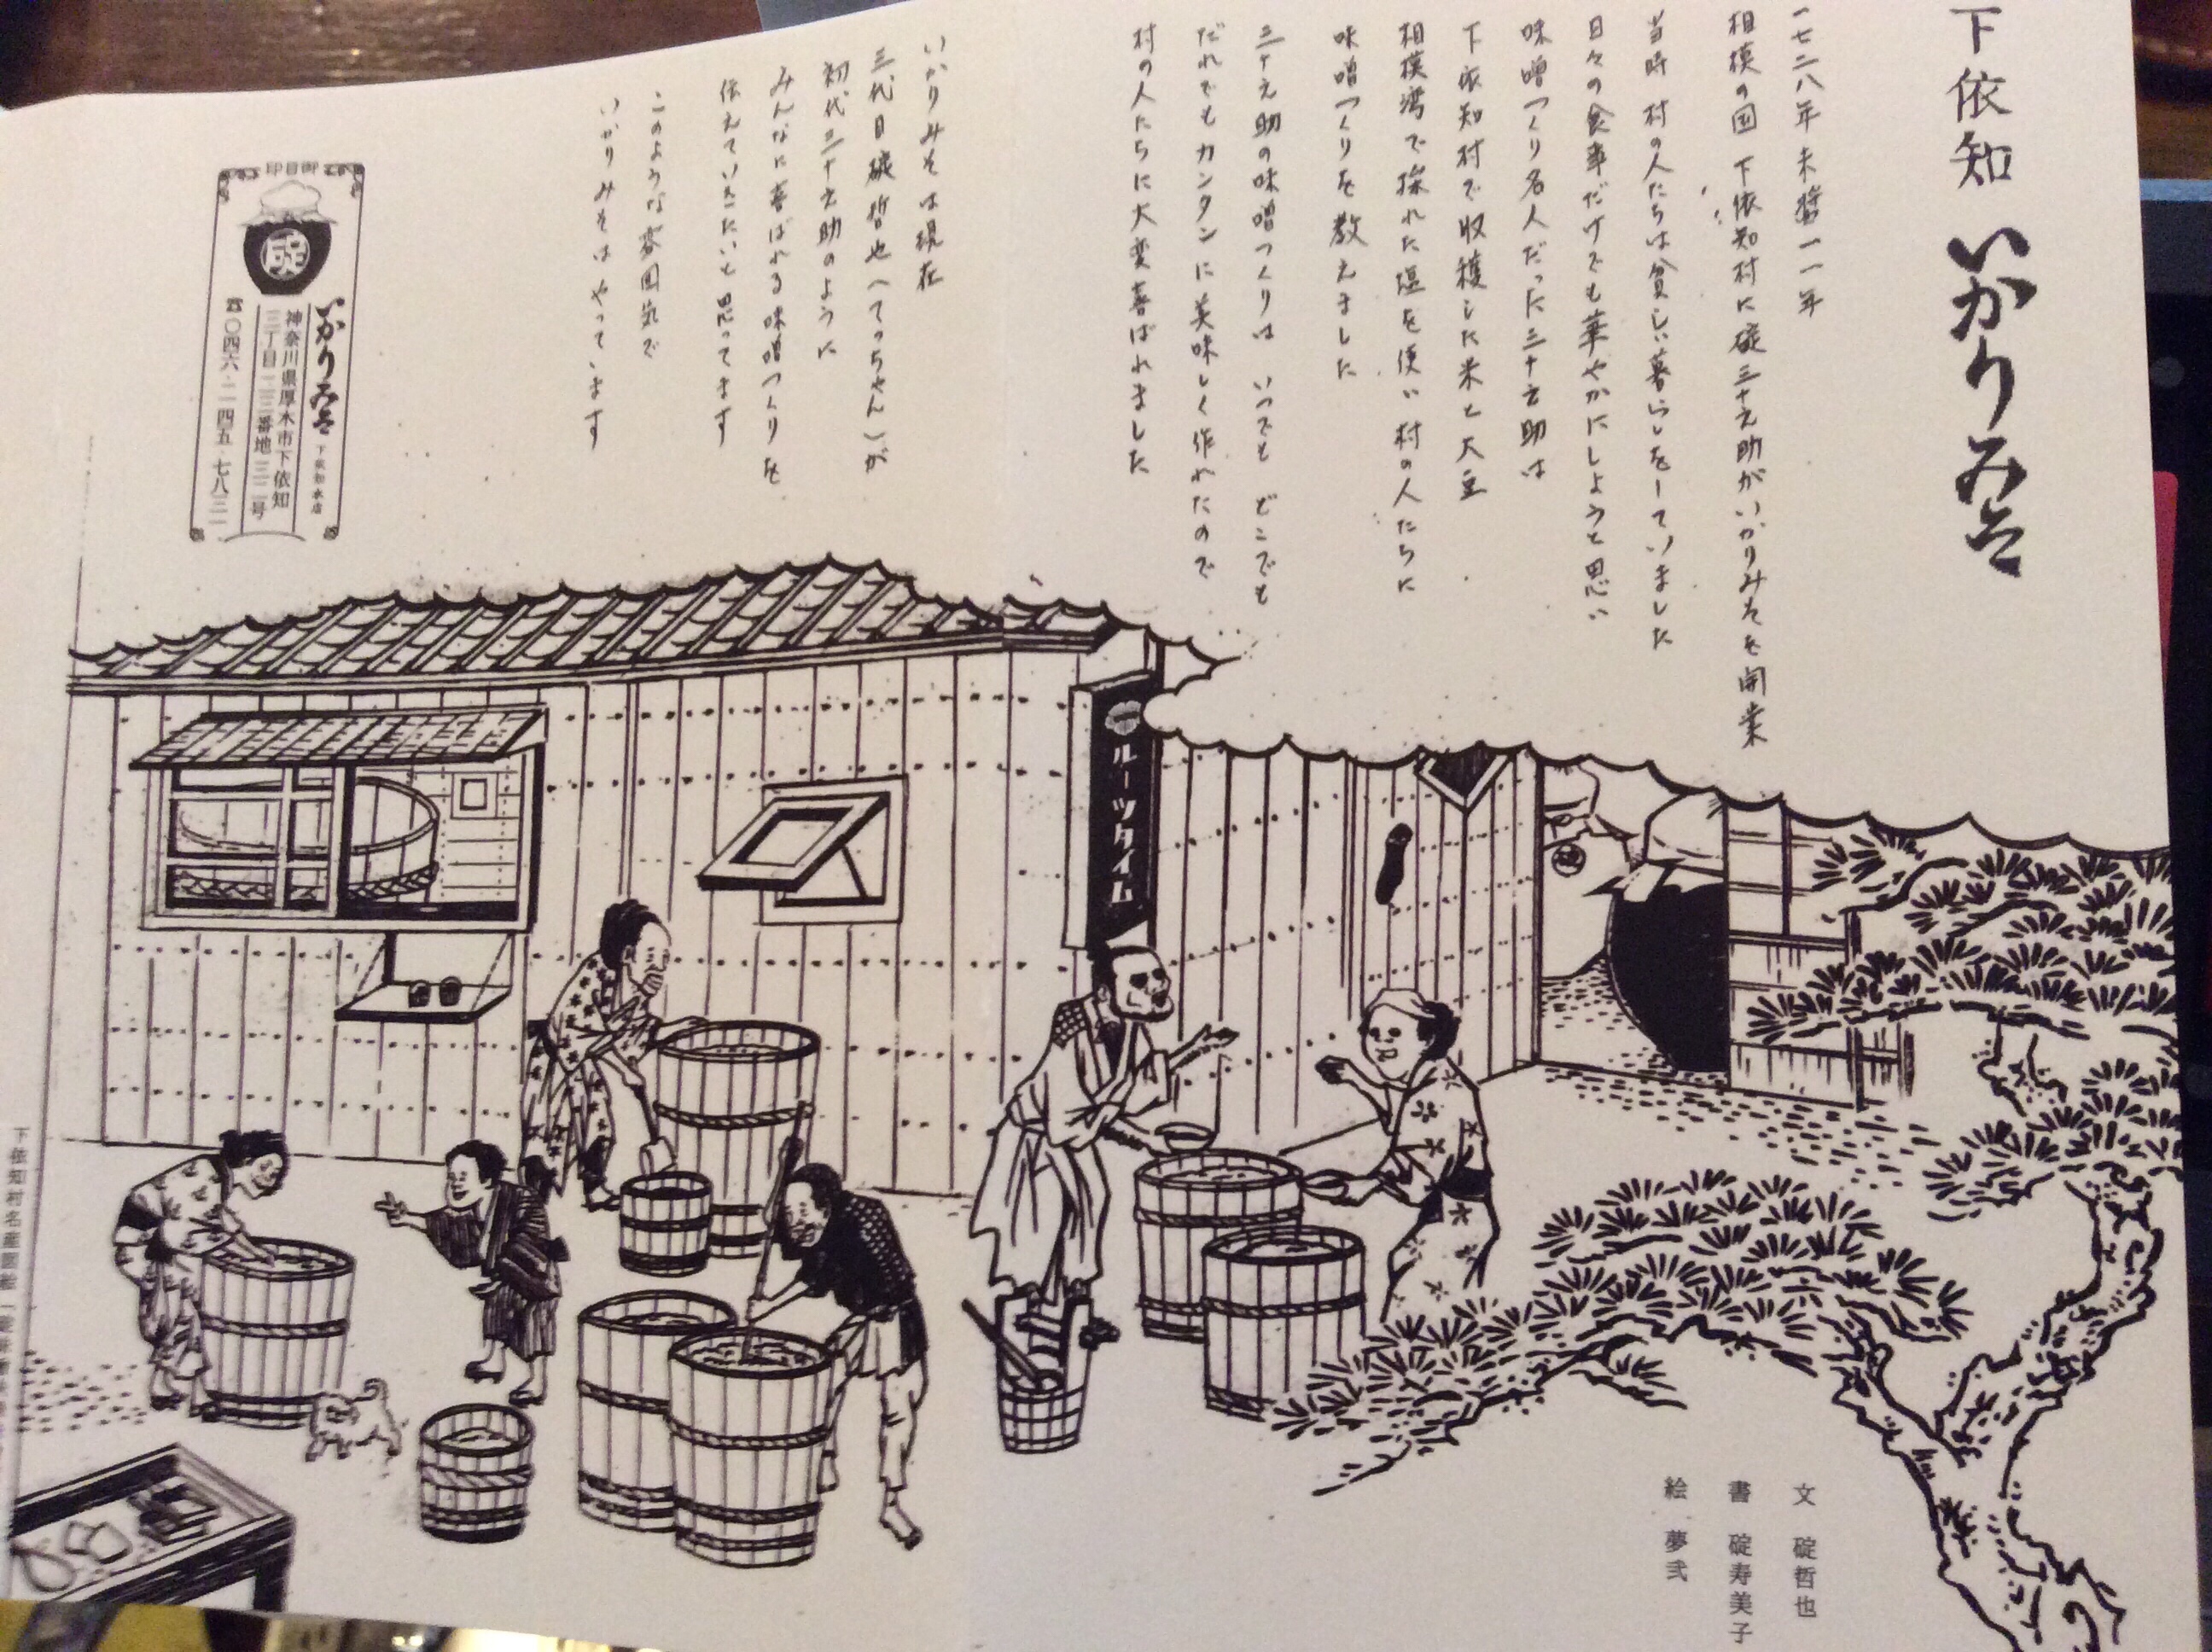 下依知 いかりみそ
一七二八年 未醤一一年
相模の国 下依知村に碇三十之助がいかりみそを開業
当時 村の人たちは貧しい暮らしをしていました
日々の食事だけでも華やかにしようと思い
味噌つくり名人だった三十之助は
下依知村で収穫した米と大豆
相模湾で採れた塩を使い 村の人たちに
味噌つくりを教えました
三十之助の味噌つくりは いつでも どこでも
だれでもカンタンに美味しく作れたので
村の人たちに大変喜ばれました
いかりみそは現在
三代目碇哲也(てっちゃん)が
初代三十之助のように
みんなに喜ばれる味噌つくりを
伝えていきたいと思ってます
このような雰囲気で
いかりみそはやっています
御目印
碇
いかりみそ 下依知本店
神奈川県厚木市下依知
三丁目一三三番地三二号
☎〇四六・二四五・七八三一
ルーツタイム
文 碇哲也
書 碇寿美子
絵 夢弐